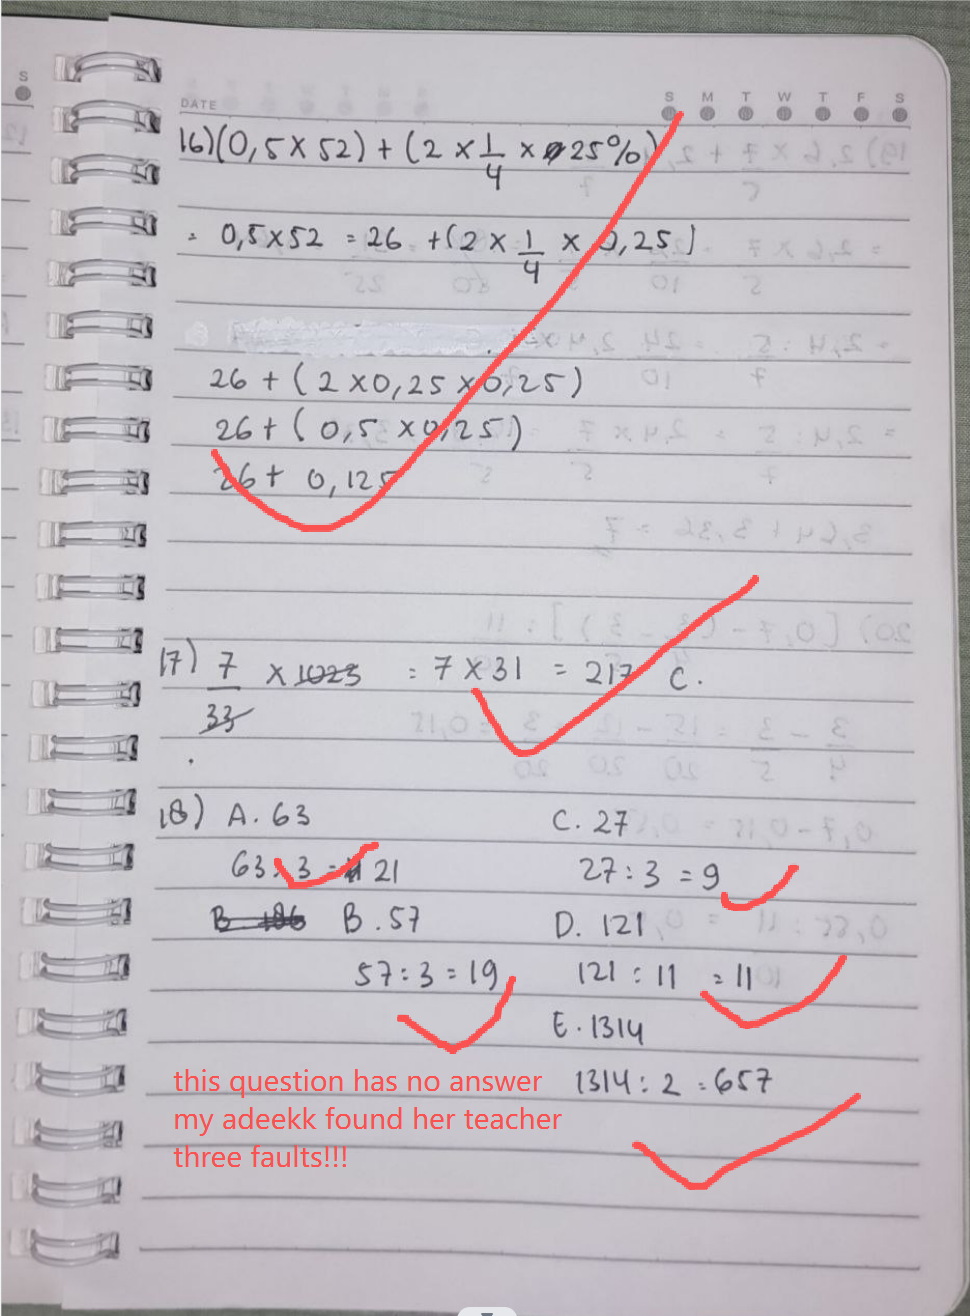 S
DATE
S M T W T F S
16) (0,5 x 52) + (2 x 1/4 x 25%)
= 0,5 x 52 = 26 + (2 x 1/4 x 0,25)
26 + (2 x 0,25 x 0,25)
26 + (0,5 x 0,25)
26 + 0,125
17) 7/33 x 1023 = 7 x 31 = 217 C.
18) A. 63
63 : 3 = 21
B. 57
57 : 3 = 19
C. 27
27 : 3 = 9
D. 121
121 : 11 = 11
E. 1314
1314 : 2 = 657
this question has no answer
my adeekk found her teacher
three faults!!!